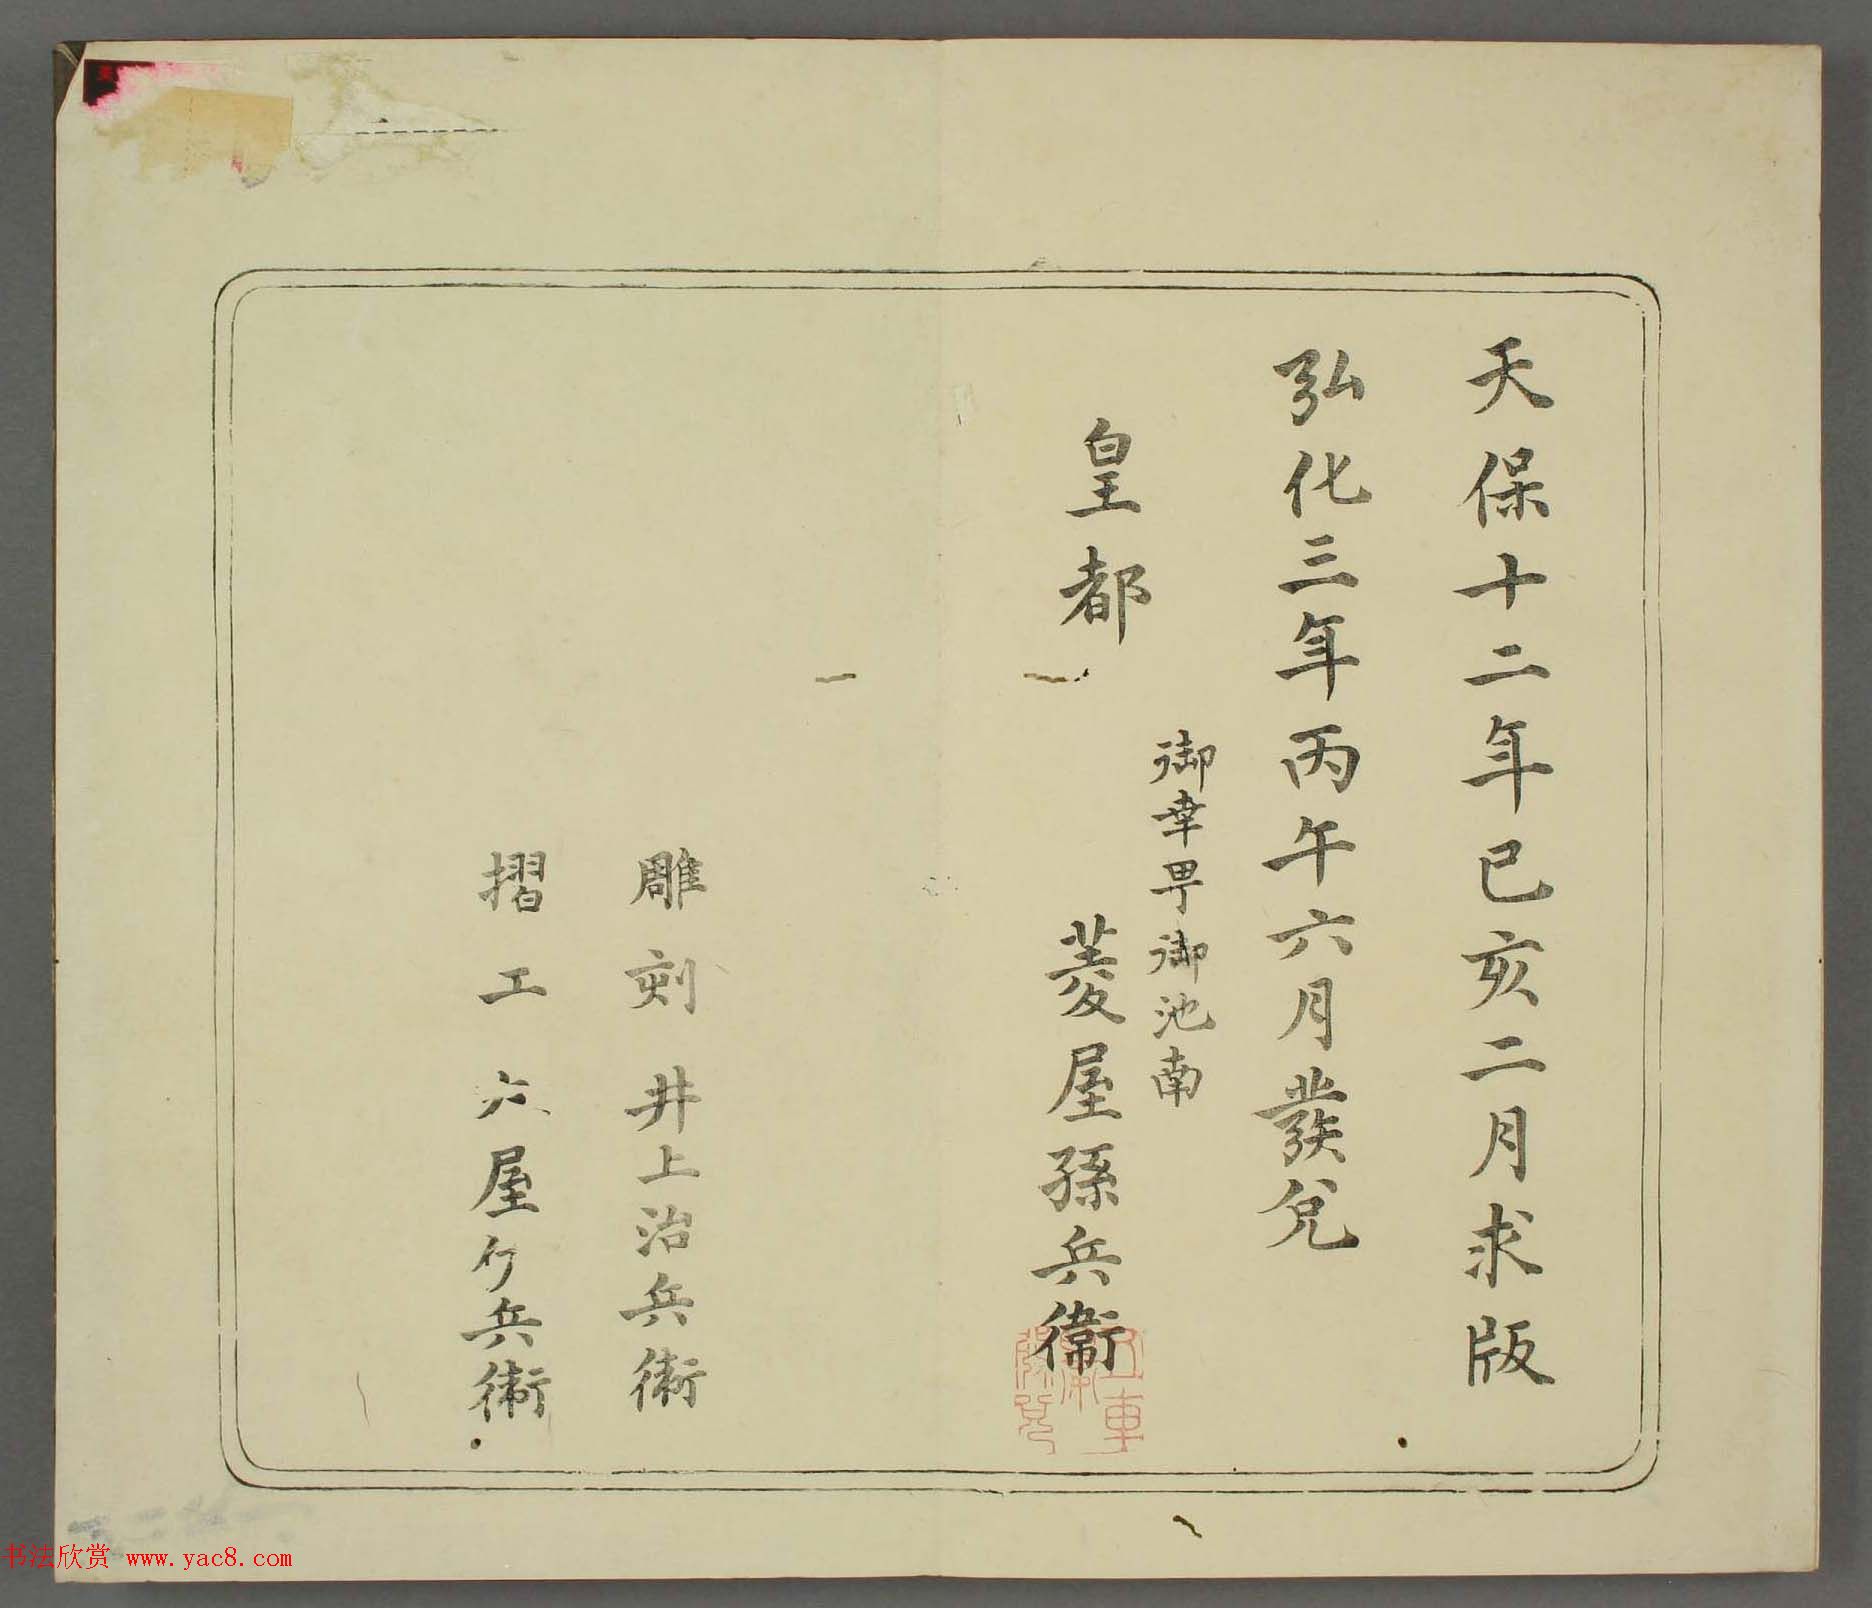 天保十二年己亥二月求版
弘化三年丙午六月發兌
皇都
御幸町御池南
菱屋孫兵衞
雕刻 井上治兵衛
摺工 六屋 兵衛
书法欣赏 www.yac8.com